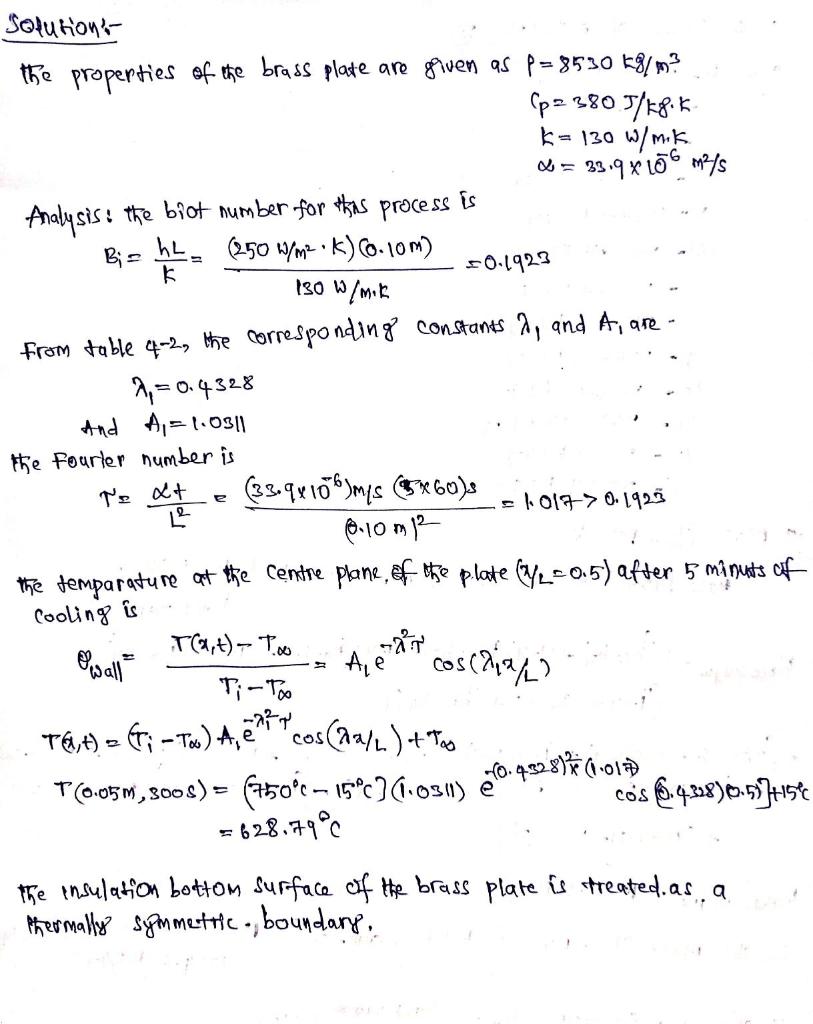 Solution:-
The properties of the brass plate are given as ρ = 8530 kg/m³
Cp = 380 J/kg.K
K = 130 W/m.K
α = 33.9 x 10⁻⁶ m²/s
Analysis: the biot number for this process is
Bi = hL/K = (250 W/m².K)(0.10m)/130 W/m.K = 0.1923
From table 4-2, the corresponding constants λ₁ and A₁ are -
λ₁ = 0.4328
And A₁ = 1.0311
The Fourier number is
τ = αt/L² = (33.9x10⁻⁶)m/s (5x60)s/(0.10 m)² = 1.017 > 0.1923
the temparature at the centre plane, of the plate (x/L = 0.5) after 5 minuts of
Cooling is
θwall = T(x,t) - T∞/Ti - T∞ = A₁e^-λ₁²τ cos(λ₁x/L)
T(x,t) = (Ti - T∞) A₁e^-λ₁²τ cos(λx/L) + T∞
T(0.05m, 300s) = (750°c - 15°c](1.0311) e^-(0.4328)²x(1.017) cos [(0.4328)(0.5)]+15°c
= 628.79°c
The insulation bottom surface of the brass plate is treated.as, a
thermally symmetric., boundary.